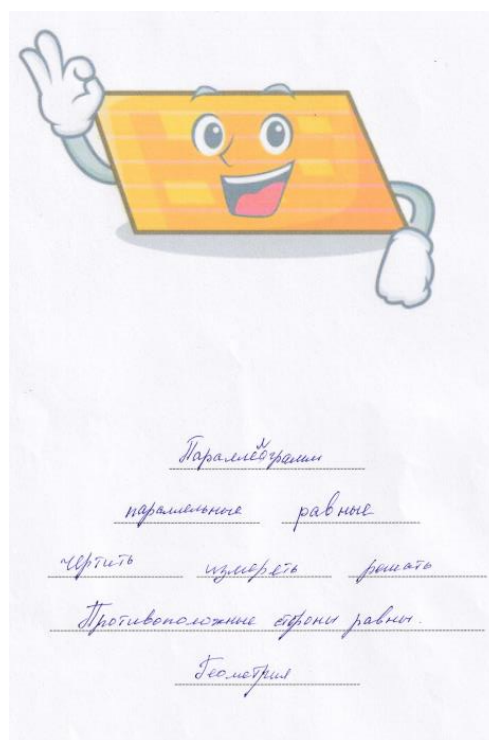 Параллелограмм
параллельные равные
чертить измереть решать
Противоположные стороны равны.
Геометрия